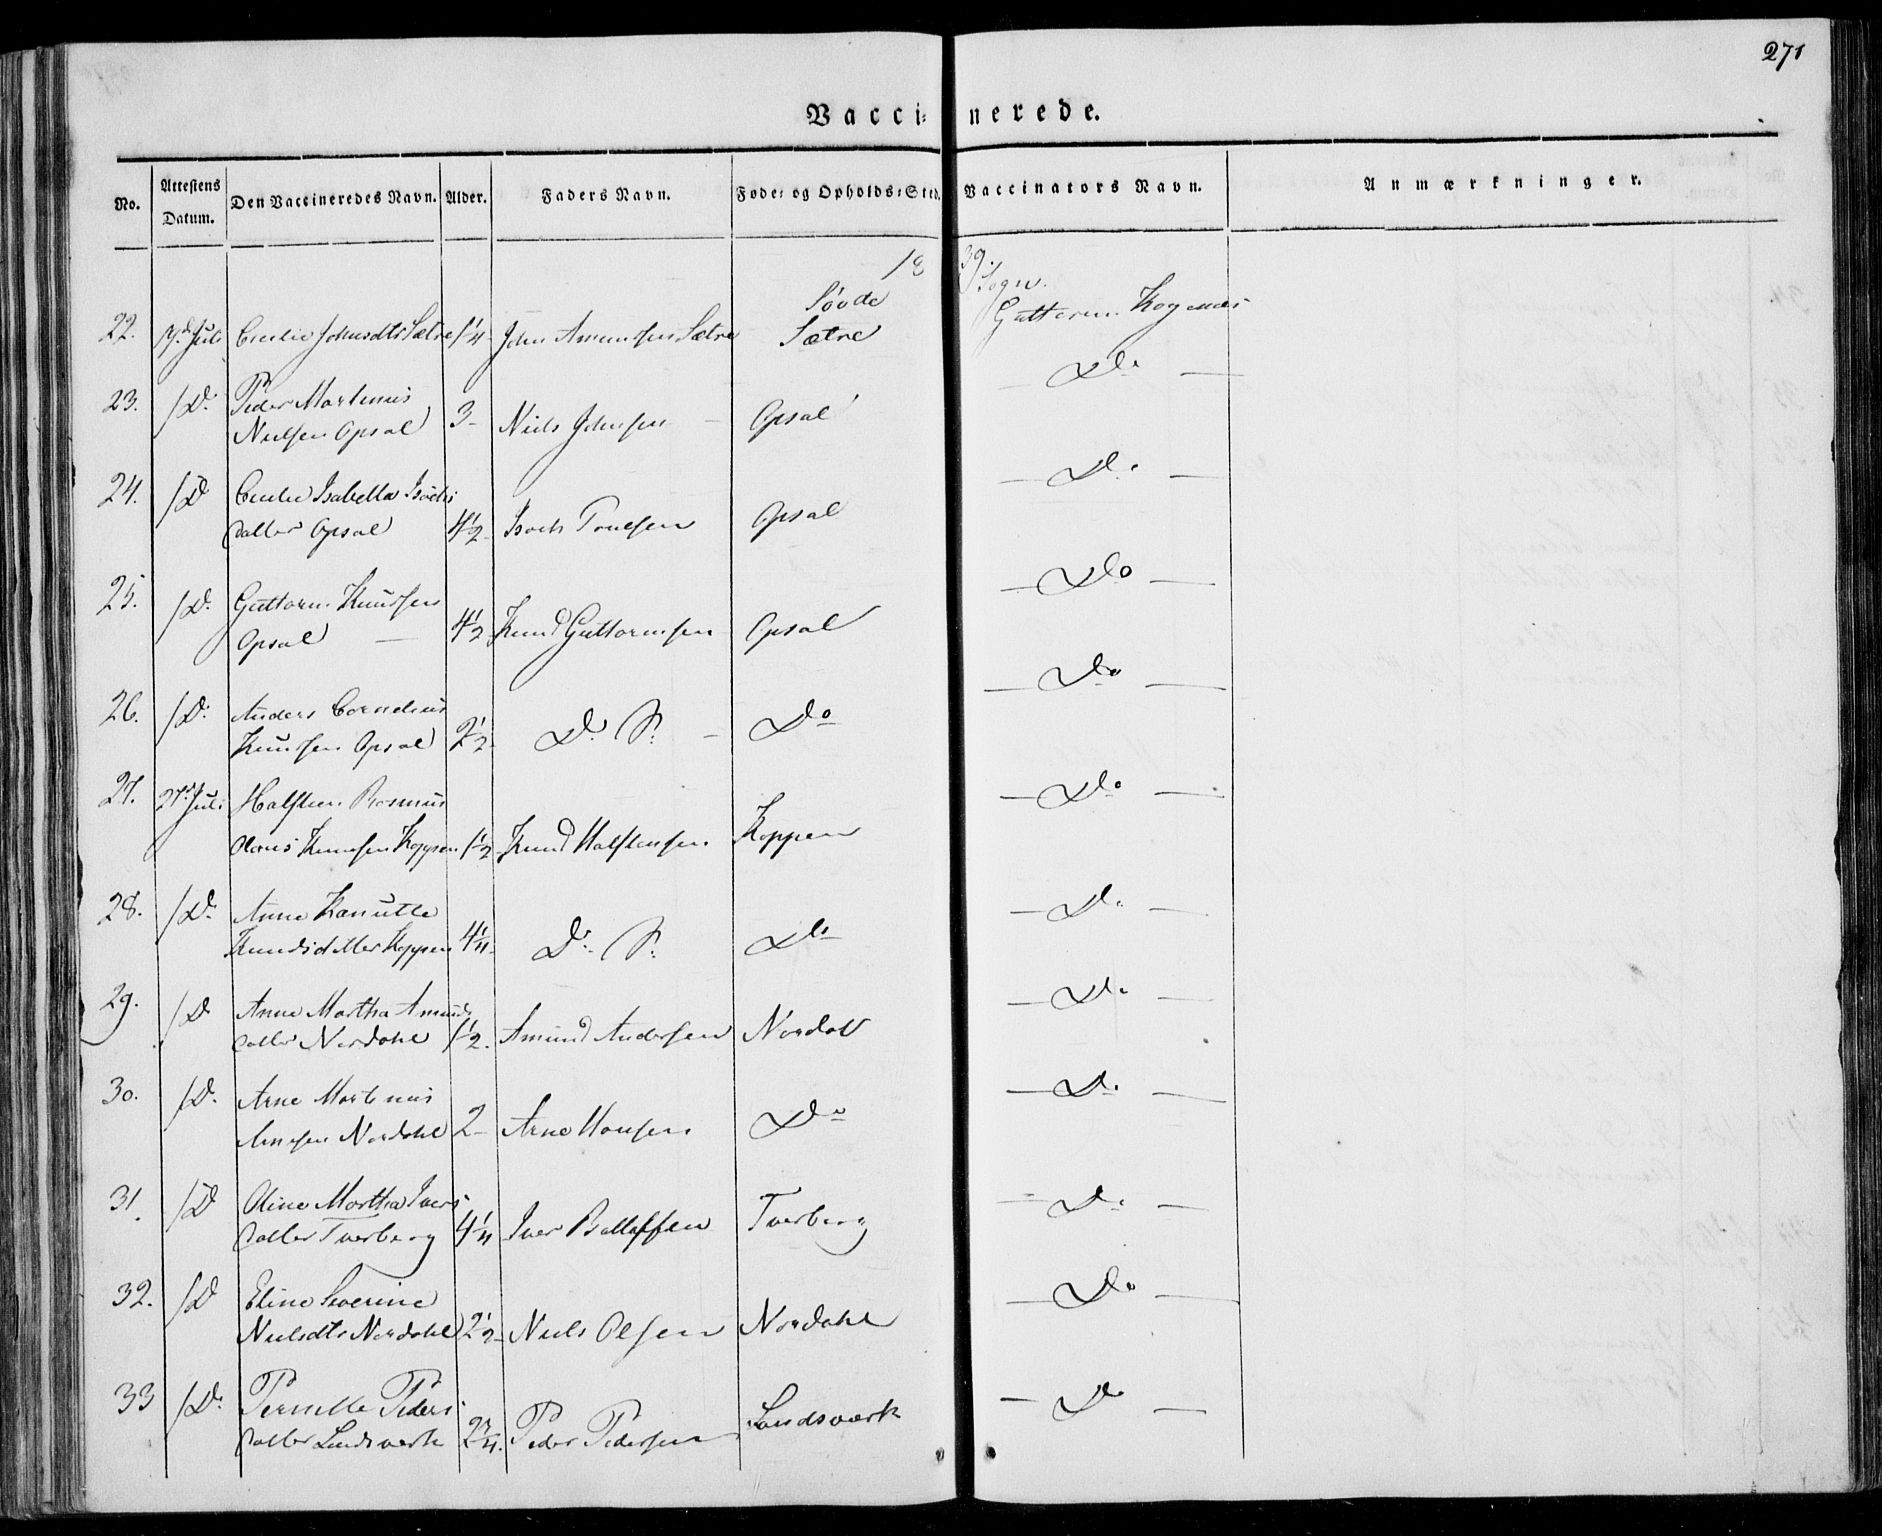 271
Vaccinerede.
No. Attestens Datum. Den Vaccineredes Navn. Alder. Faders Navn. Føde- og Opholds-Sted. Vaccinators Navn. Anmærkninger.
1839.
Søvde Sogn.
22. Juli Cecilie Johnsdtr Sætre 1¼ John Amundsen Sætre Sætre Guttorm Kogenæs
23. /D. Peder Martinus
Nielsen Opsal 3 – Niels Johnsen – Opsal — Do —
24. /D Cecilie Isabella Isachs
datter Opsal 4½ Isach Poulsen Opsal — Do —
25. /D. Guttorm Knudsen
Opsal — 4½ Knud Guttormsen Opsal — Do —
26. /D. Anders Cornelius
Knudsen Opsal 2½ Do S. – Do — Do —
27. 27de Juli Halsten Rasmus
Olaus Knudsen Koppen 1½ Knud Halstensen Koppen — Do —
28. /D. Anne Kanutte
Knudsdatter Koppen 4¼ Do S. Do — Do —
29. /D Anne Martha Amunds
datter Nordahl 1½. Amund Andersen Nordal — Do —
30. /D. Arne Martinus
Arnesen Nordahl 2 – Arne Hansen Do — Do —
31. /D Oline Martha Ivers
datter Tverberg 4¼ Iver Ballessen Tverberg — Do —
32. /D Eline Severine
Nielsdtr Nordahl 2½ Niels Olsen Nordahl — Do —
33 /D. Pernille Peders
datter Landsværk 2¾. Peder Pedersen Landsværk — Do —